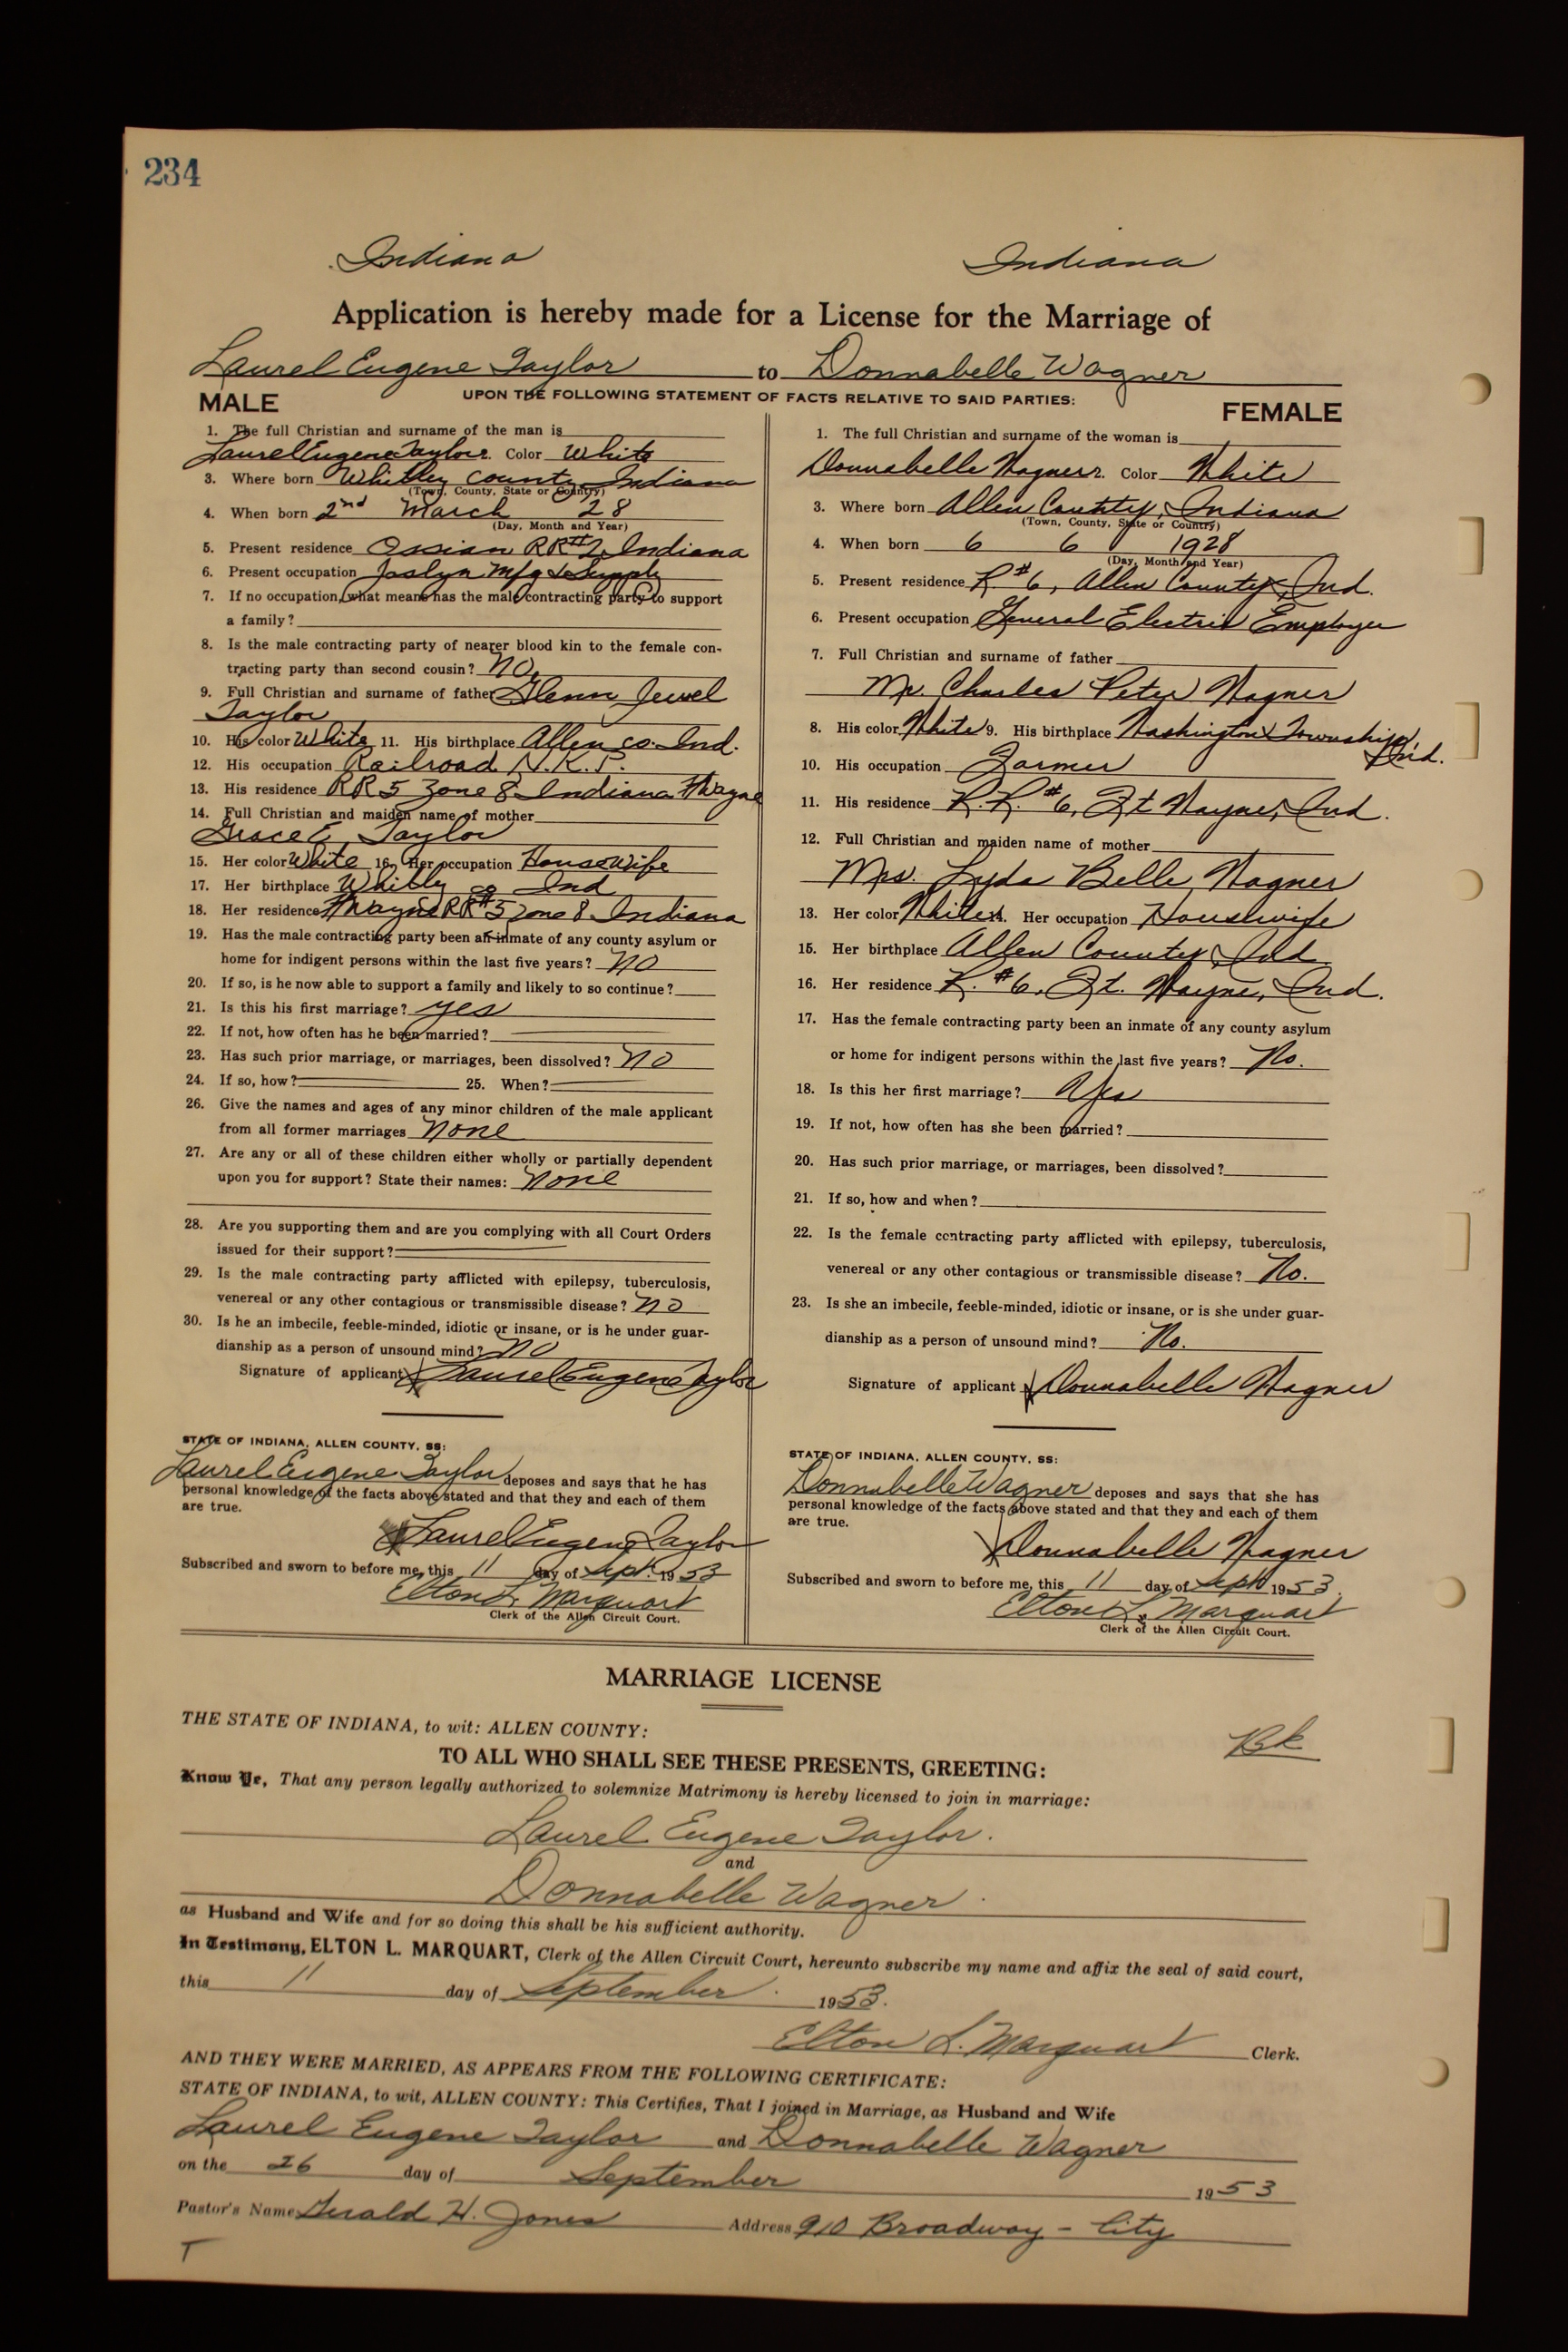 234
Indiana Indiana
Application is hereby made for a License for the Marriage of
Laurel Eugene Taylor to Donnabelle Wagner
UPON THE FOLLOWING STATEMENT OF FACTS RELATIVE TO SAID PARTIES:
MALE
1. The full Christian and surname of the man is
Laurel Eugene Taylor 2. Color White
3. Where born Whitley county Indiana
(Town, County, State or Country)
4. When born 2nd March 28
(Day, Month and Year)
5. Present residence Ossian RR#2 Indiana
6. Present occupation Joslyn Mfg & Supply
7. If no occupation, what means has the male contracting party to support
a family?
8. Is the male contracting party of nearer blood kin to the female con-
tracting party than second cousin? No.
9. Full Christian and surname of father Glenn Jewel
Taylor
10. His color White 11. His birthplace Allen co. Ind.
12. His occupation Railroad N.K.P.
13. His residence RR5 Zone 8 Indiana Ft Wayne
14. Full Christian and maiden name of mother
Grace E Taylor
15. Her color White 16. Her occupation Housewife
17. Her birthplace Whitley co Ind
18. Her residence Ft Wayne RR#5 Zone 8 Indiana
19. Has the male contracting party been an inmate of any county asylum or
home for indigent persons within the last five years? no
20. If so, is he now able to support a family and likely to so continue?
21. Is this his first marriage? yes
22. If not, how often has he been married?
23. Has such prior marriage, or marriages, been dissolved? no
24. If so, how? 25. When?
26. Give the names and ages of any minor children of the male applicant
from all former marriages none
27. Are any or all of these children either wholly or partially dependent
upon you for support? State their names: none
28. Are you supporting them and are you complying with all Court Orders
issued for their support?
29. Is the male contracting party afflicted with epilepsy, tuberculosis,
venereal or any other contagious or transmissible disease? no
30. Is he an imbecile, feeble-minded, idiotic or insane, or is he under guar-
dianship as a person of unsound mind? no
Signature of applicant Laurel Eugene Taylor
STATE OF INDIANA, ALLEN COUNTY, SS:
Laurel Eugene Taylor deposes and says that he has
personal knowledge of the facts above stated and that they and each of them
are true.
Laurel Eugene Taylor
Subscribed and sworn to before me, this 11 day of Sept. 1953
Elton L. Marquart
Clerk of the Allen Circuit Court.
FEMALE
1. The full Christian and surname of the woman is
Donnabelle Wagner 2. Color White
3. Where born Allen County, Indiana
(Town, County, State or Country)
4. When born 6 6 1928
(Day, Month and Year)
5. Present residence R#6, Allen County, Ind.
6. Present occupation General Electric Employee
7. Full Christian and surname of father
Mr. Charles Peter Wagner
8. His color White 9. His birthplace Washington Township, Ind.
10. His occupation Farmer
11. His residence R.R.#6, Ft Wayne, Ind.
12. Full Christian and maiden name of mother
Mrs. Lyda Belle Wagner
13. Her color White 14. Her occupation Housewife
15. Her birthplace Allen County, Ind
16. Her residence R.#6, Ft. Wayne, Ind.
17. Has the female contracting party been an inmate of any county asylum
or home for indigent persons within the last five years? No.
18. Is this her first marriage? Yes
19. If not, how often has she been married?
20. Has such prior marriage, or marriages, been dissolved?
21. If so, how and when?
22. Is the female contracting party afflicted with epilepsy, tuberculosis,
venereal or any other contagious or transmissible disease? No.
23. Is she an imbecile, feeble-minded, idiotic or insane, or is she under guar-
dianship as a person of unsound mind? No.
Signature of applicant Donnabelle Wagner
STATE OF INDIANA, ALLEN COUNTY, SS:
Donnabelle Wagner deposes and says that she has
personal knowledge of the facts above stated and that they and each of them
are true.
Donnabelle Wagner
Subscribed and sworn to before me, this 11 day of Sept 1953.
Elton L. Marquart
Clerk of the Allen Circuit Court.
MARRIAGE LICENSE
THE STATE OF INDIANA, to wit: ALLEN COUNTY:
Bk
TO ALL WHO SHALL SEE THESE PRESENTS, GREETING:
Know Ye, That any person legally authorized to solemnize Matrimony is hereby licensed to join in marriage:
Laurel Eugene Taylor.
and
Donnabelle Wagner.
as Husband and Wife and for so doing this shall be his sufficient authority.
In Testimony, ELTON L. MARQUART, Clerk of the Allen Circuit Court, hereunto subscribe my name and affix the seal of said court,
this 11 day of September. 1953.
Elton L. Marquart Clerk.
AND THEY WERE MARRIED, AS APPEARS FROM THE FOLLOWING CERTIFICATE:
STATE OF INDIANA, to wit, ALLEN COUNTY: This Certifies, That I joined in Marriage, as Husband and Wife
Laurel Eugene Taylor and Donnabelle Wagner
on the 26 day of September 1953
Pastor's Name Gerald H. Jones Address 910 Broadway - City
T